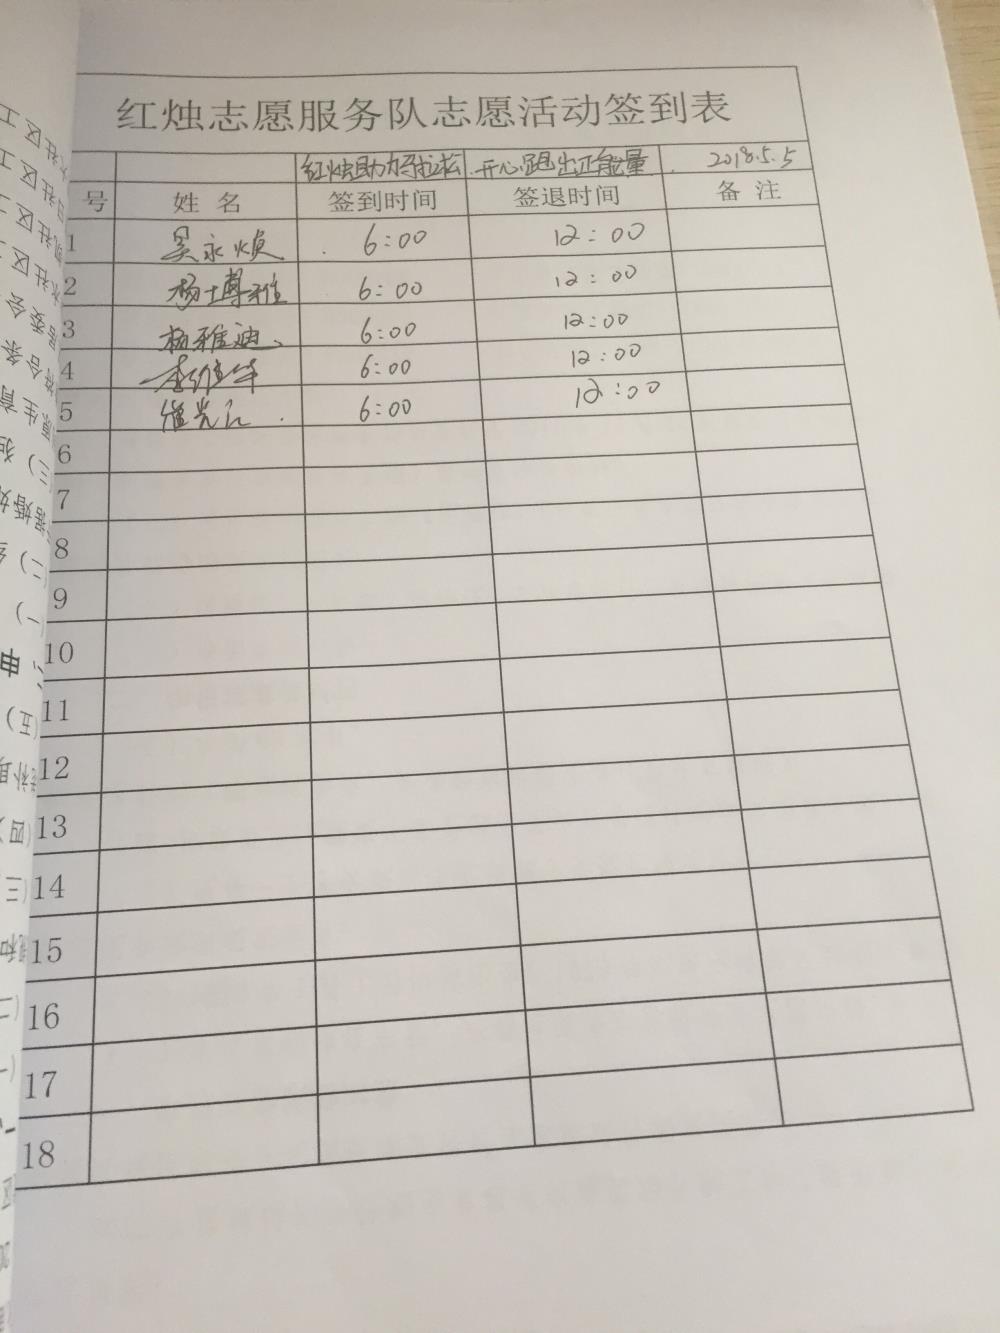 红烛志愿服务队志愿活动签到表
红烛助力马拉松 开心跑出正能量 2018.5.5
号 姓名 签到时间 签退时间 备注
1 吴永煩 6:00 12:00
2 杨博雅 6:00 12:00
3 杨雅迪 6:00 12:00
4 李维华 6:00 12:00
5 崔光 6:00 12:00
6
7
8
9
10
11
12
13
14
15
16
17
18